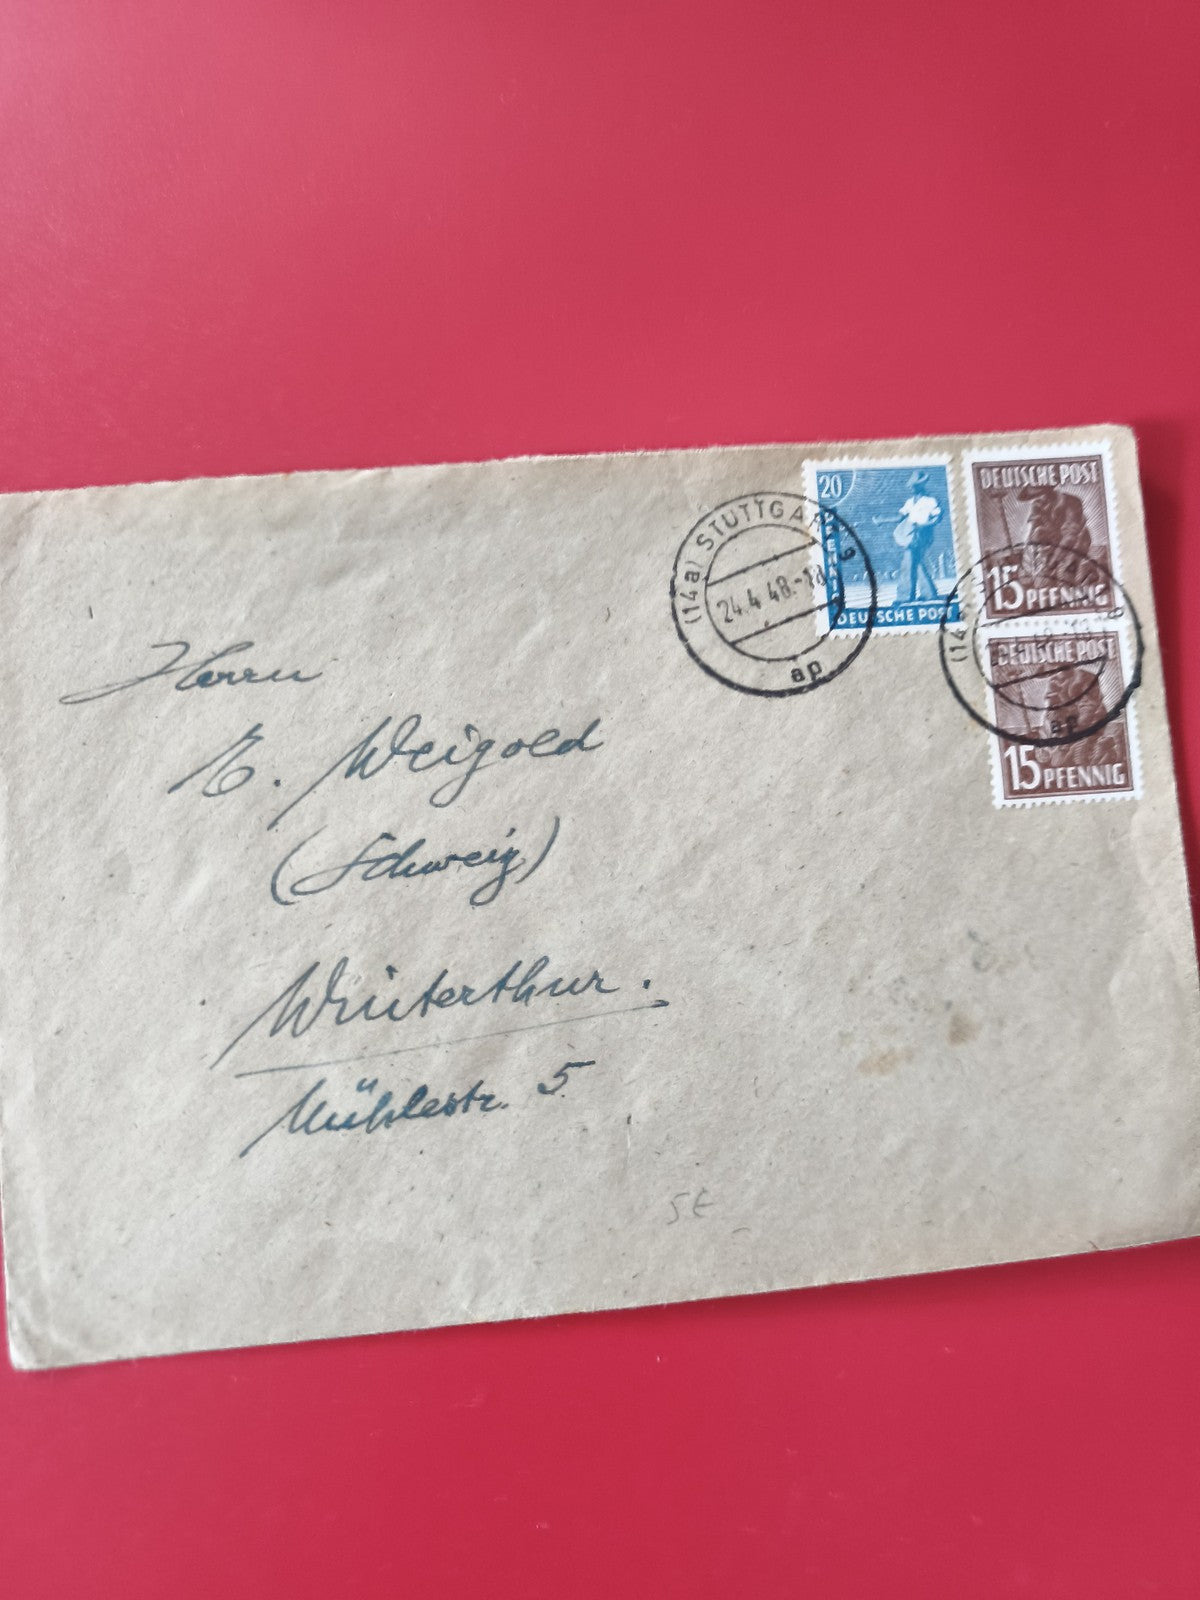 (14a) STUTTGART 9
24.4.48.-18
ap
20
PFENNIG
DEUTSCHE POST
DEUTSCHE POST
15 PFENNIG
DEUTSCHE POST
15 PFENNIG
ap
Herrn
E. Weigold
(Schweiz)
Winterthur.
Mühlestr. 5
5€